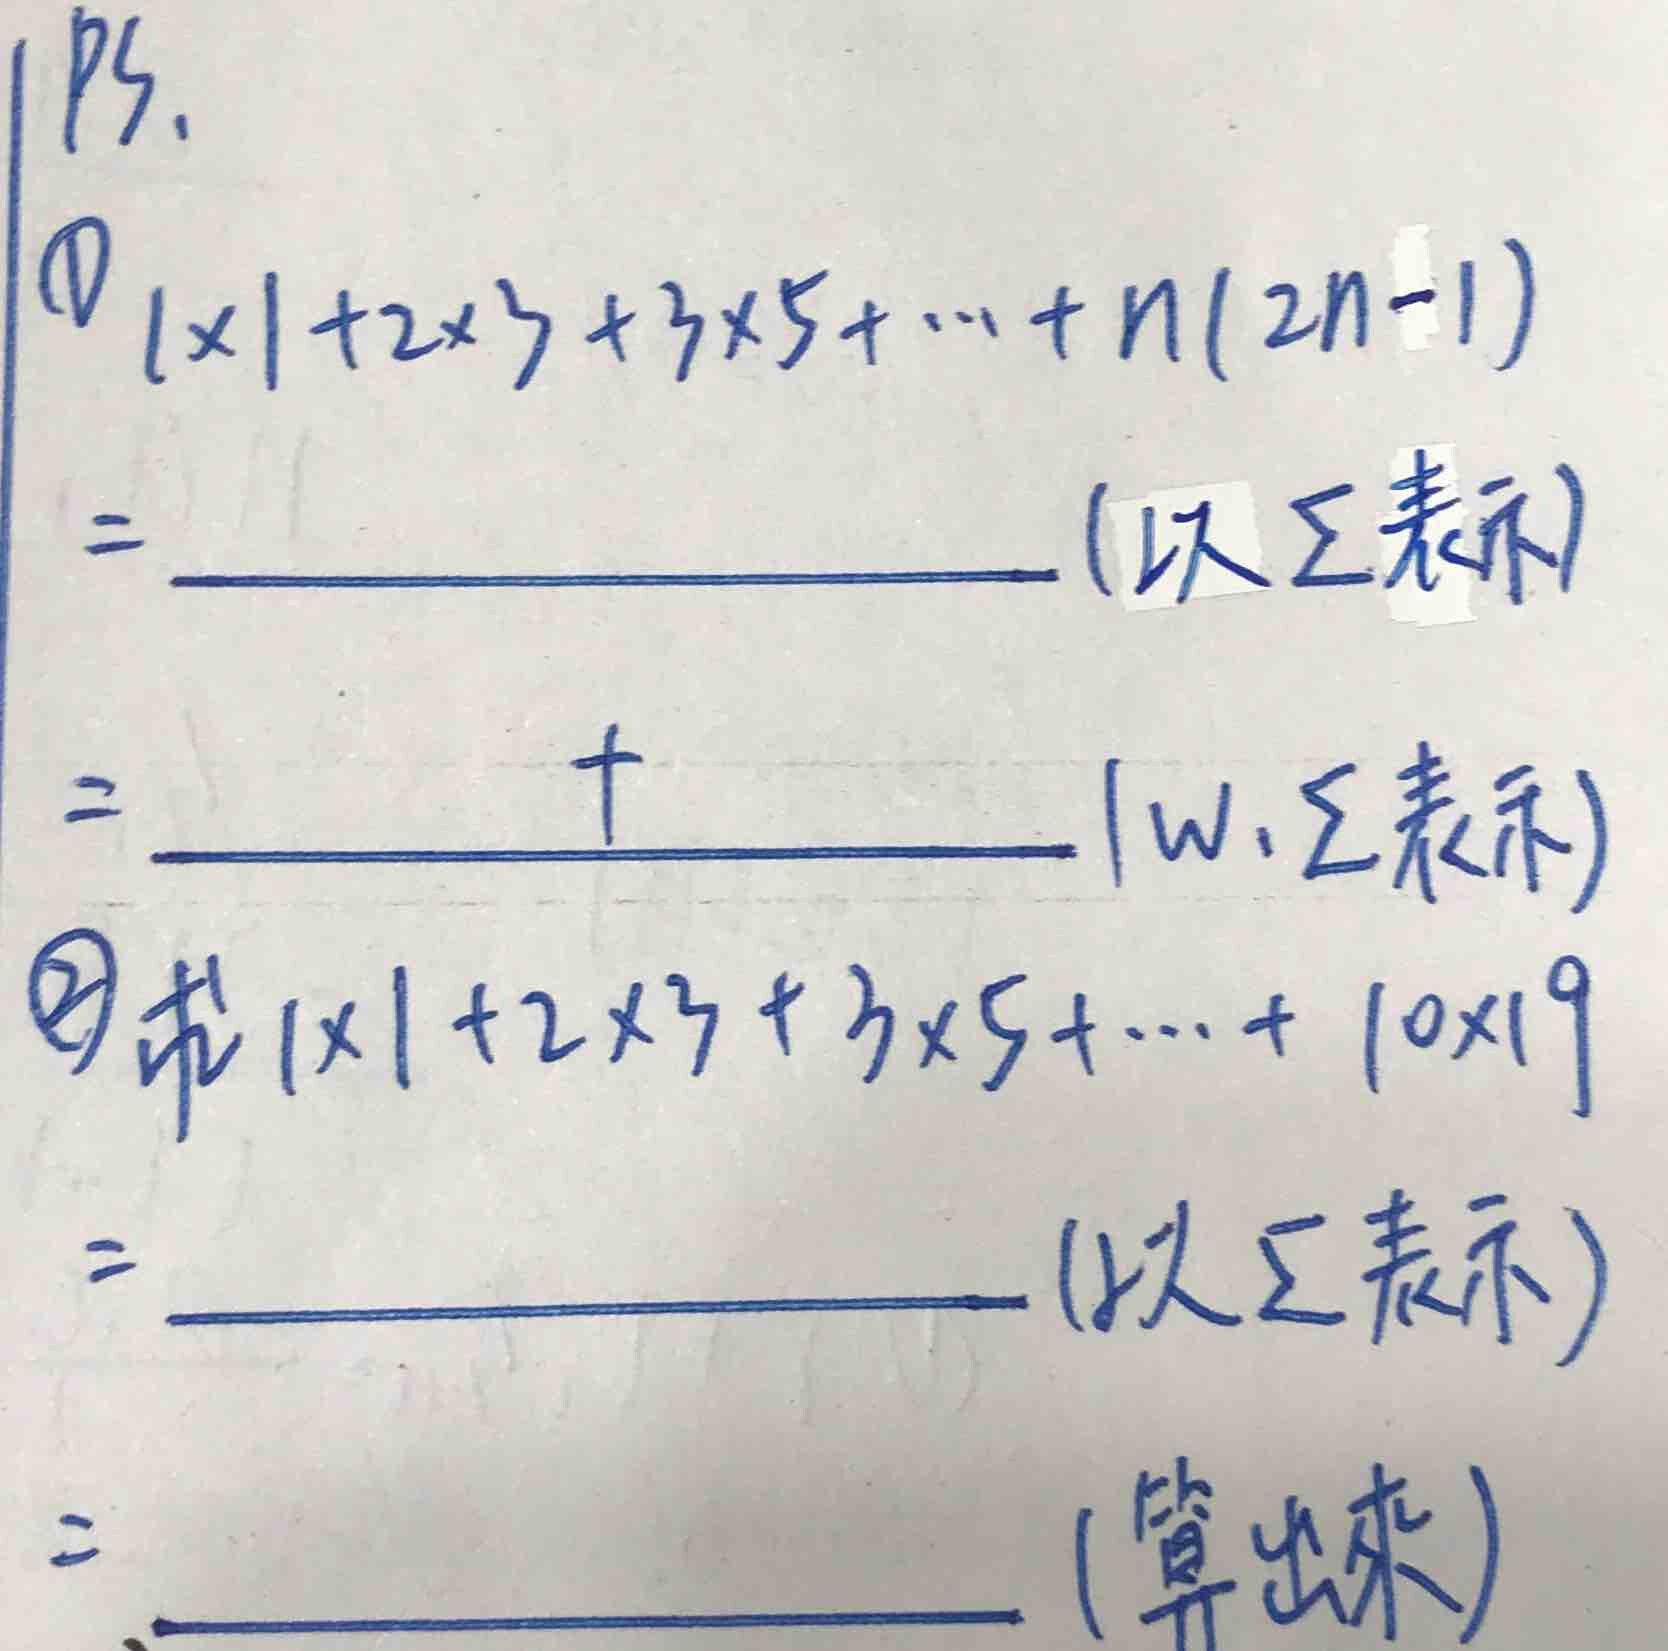 PS.
① 1×1+2×3+3×5+…+n(2n-1)
= ________ (以Σ表示)
= ____+____ (W、Σ表示)
② 求1×1+2×3+3×5+…+10×19
= ________ (以Σ表示)
= ________ (算出來)